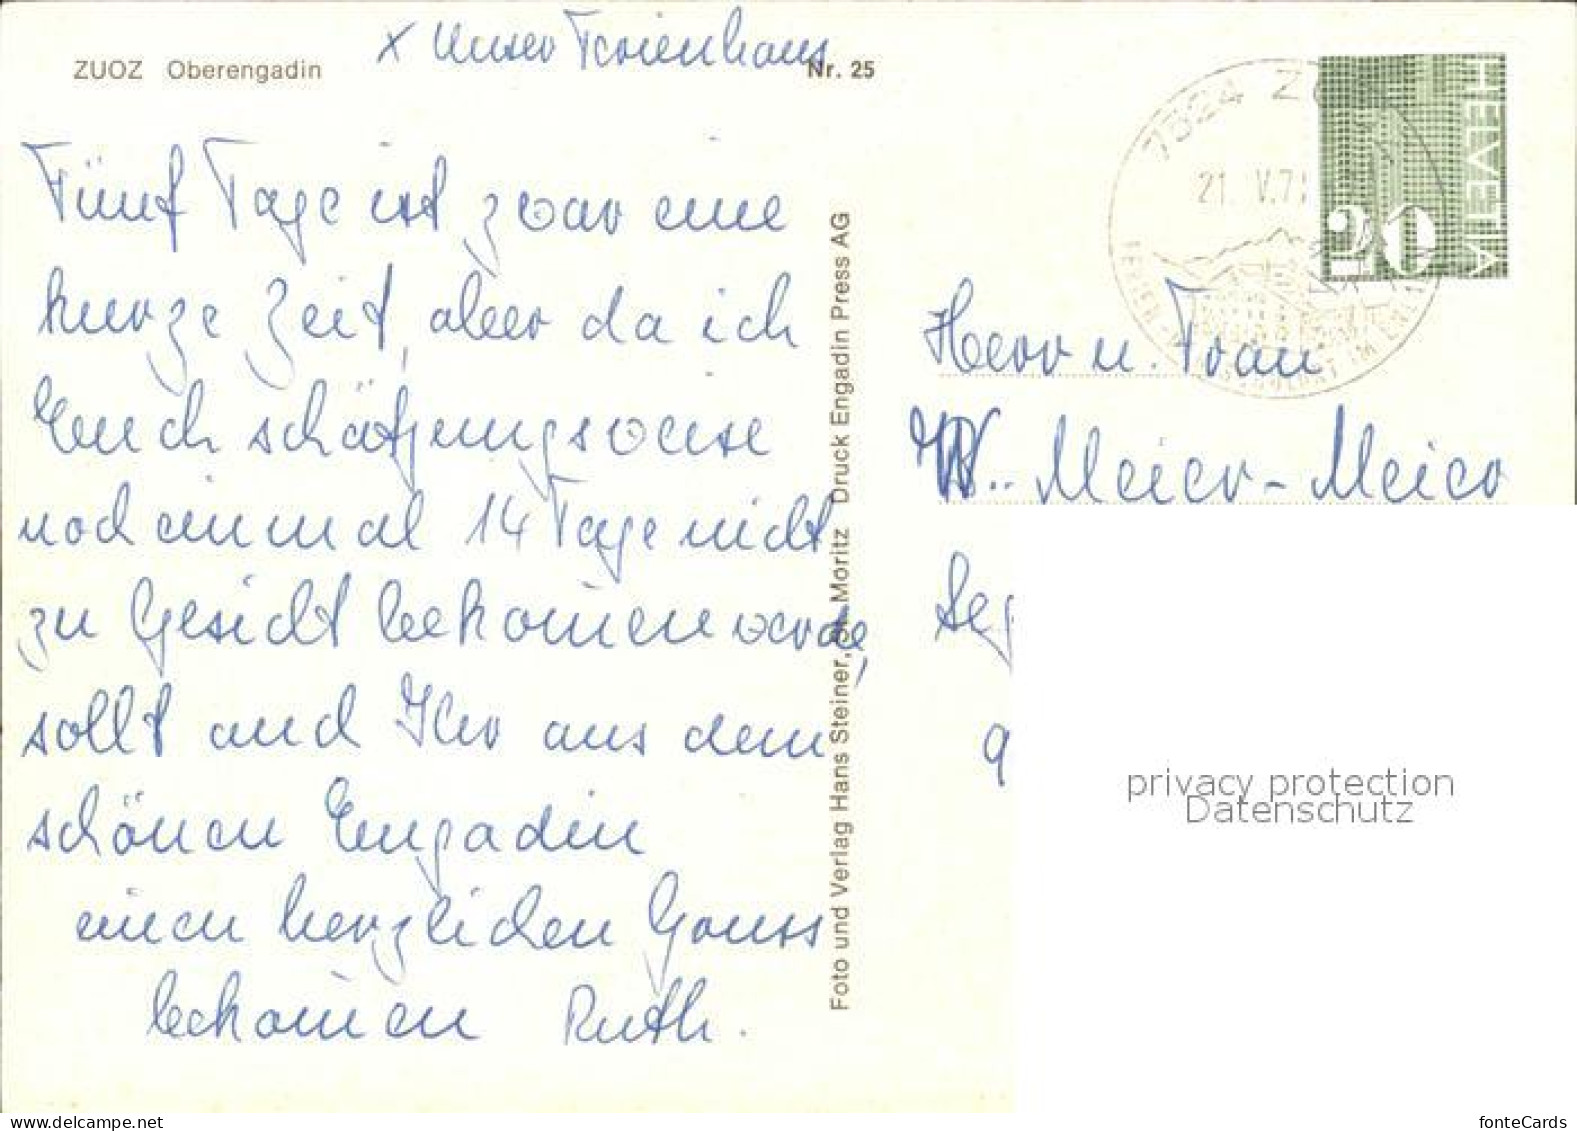 x Unser Ferienhaus
ZUOZ Oberengadin
Nr. 25
Fünf Tage ist zwar eine
kurze Zeit, aber da ich
Euch schätzungsweise
noch einmal 14 Tage nicht
zu Gesicht bekom̄en werde,
sollt auch Ihr aus dem
schönen Engadin
einen herzlichen Gruss
bekom̄en Ruth.
Foto und Verlag Hans Steiner, St. Moritz Druck Engadin Press AG
7524 ZU
21. V.71
FERIEN-
IM
HELVETIA
20
Herr u. Frau
W. Meier-Meier
privacy protection
Datenschutz
www.ansichtskartenversand.com
fonteCards